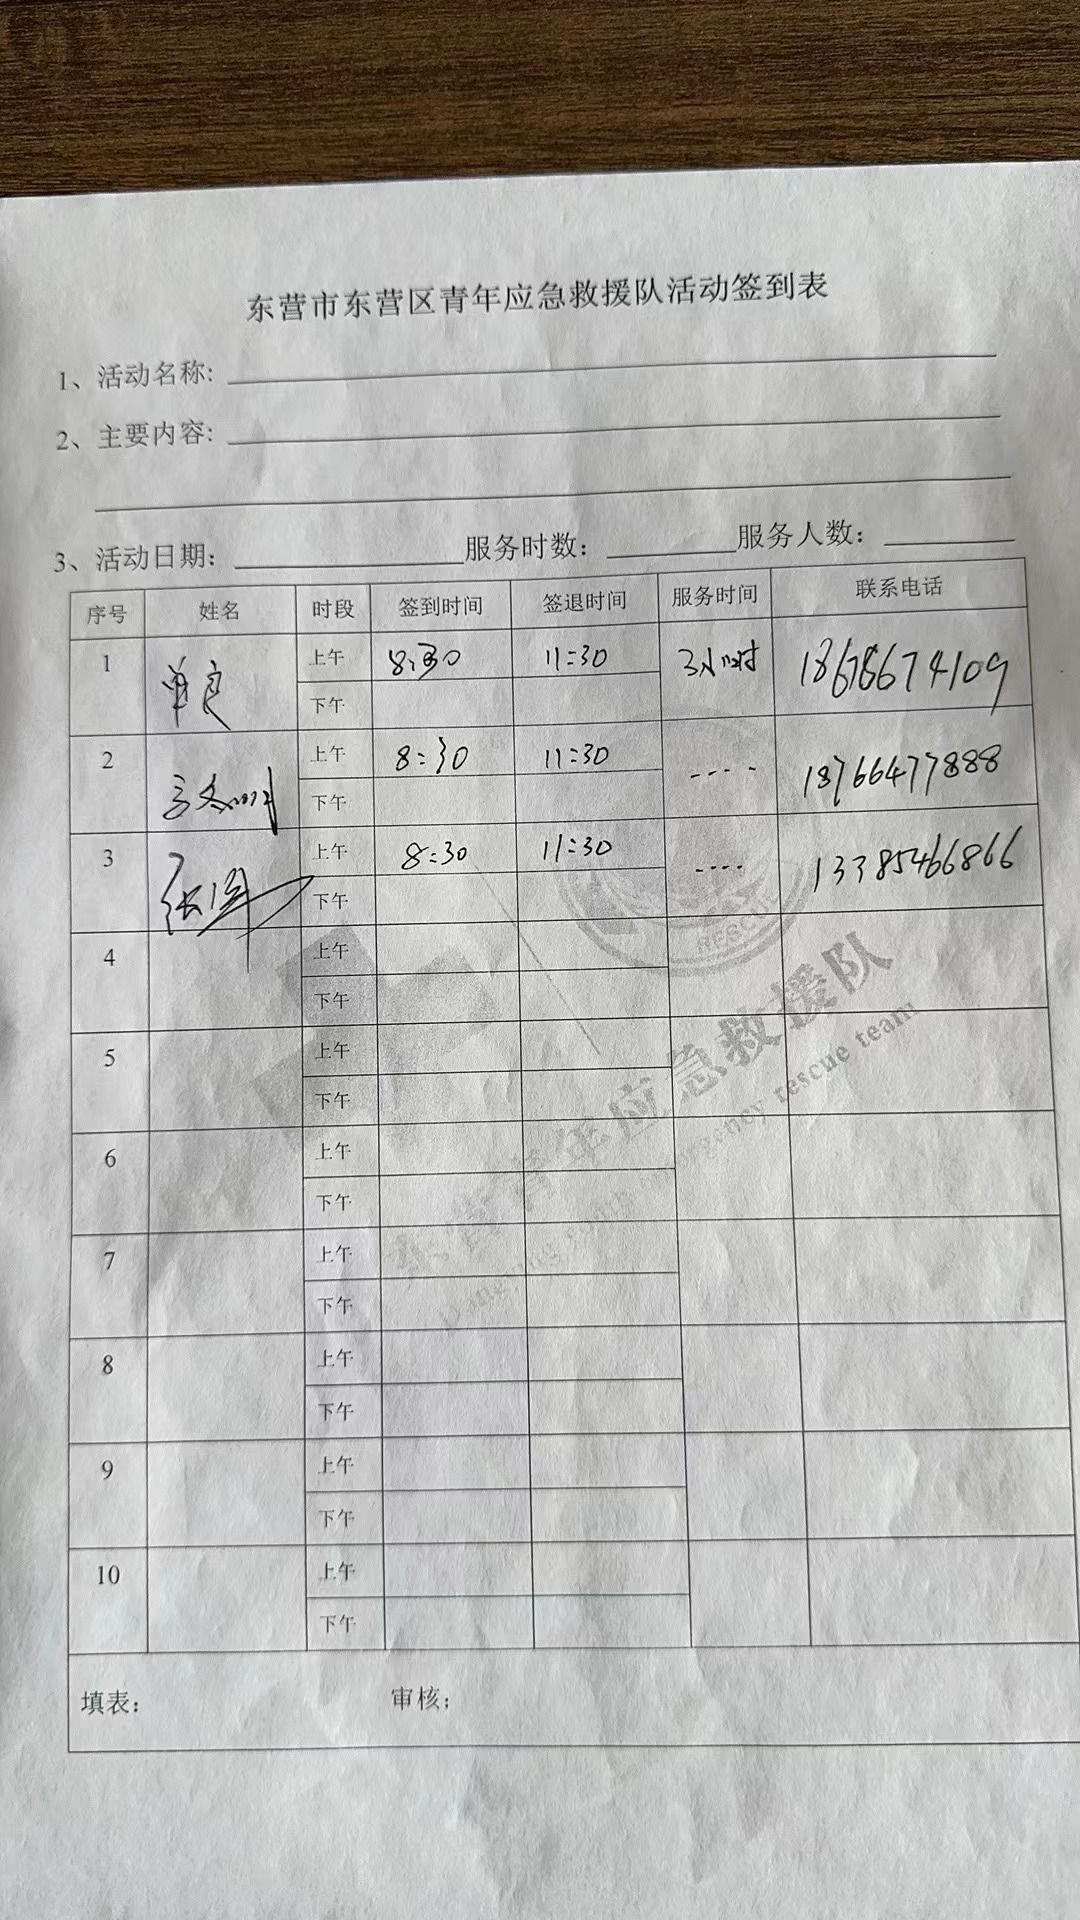 东营市东营区青年应急救援队活动签到表
1、活动名称:
2、主要内容:
3、活动日期: 服务时数: 服务人数:
序号 姓名 时段 签到时间 签退时间 服务时间 联系电话
1 单良 上午 8:30 11:30 3小时 18678674109
下午
2 上午 8:30 11:30 ---- 18766477888
下午
3 上午 8:30 11:30 ---- 13385466866
下午
RESCUE
4 上午
下午
5 上午
下午
6 上午
下午
7 上午
下午
8 上午
下午
9 上午
下午
10 上午
下午
东营青年应急救援队
emergency rescue team
填表: 审核: